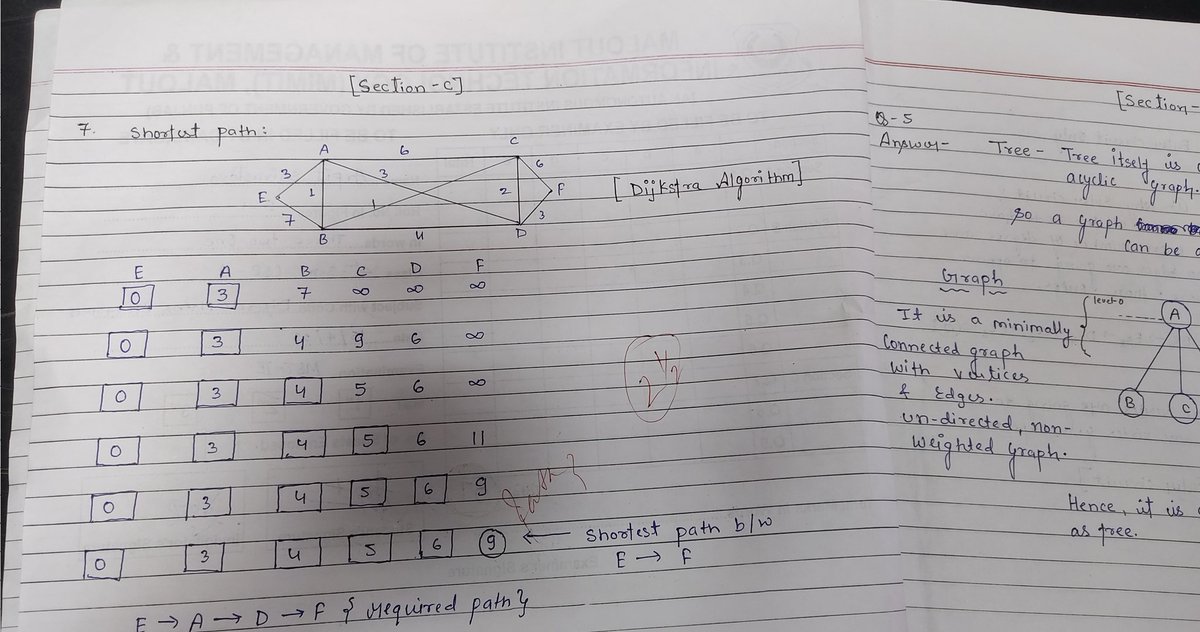 [Section-C]
7. Shortest path:
A 6 C
3 3 6
E 1 2 F [Dijkstra Algorithm]
7 1 3
B 4 D
E A B C D F
0 3 7 ∞ ∞ ∞
0 3 4 9 6 ∞
0 3 4 5 6 ∞
0 3 4 5 6 11
0 3 4 5 6 9
0 3 4 5 6 9 ← Shortest path b/w
E → F
E → A → D → F { required path}
2 1/2
Path?
[Section-
Q-5
Answer- Tree - Tree itself is
acyclic graph.
so a graph
can be
Graph
It is a minimally
connected graph
with vertices
& Edges.
un-directed, non-
weighted graph.
level-0
A
B C
Hence, it is
as tree.